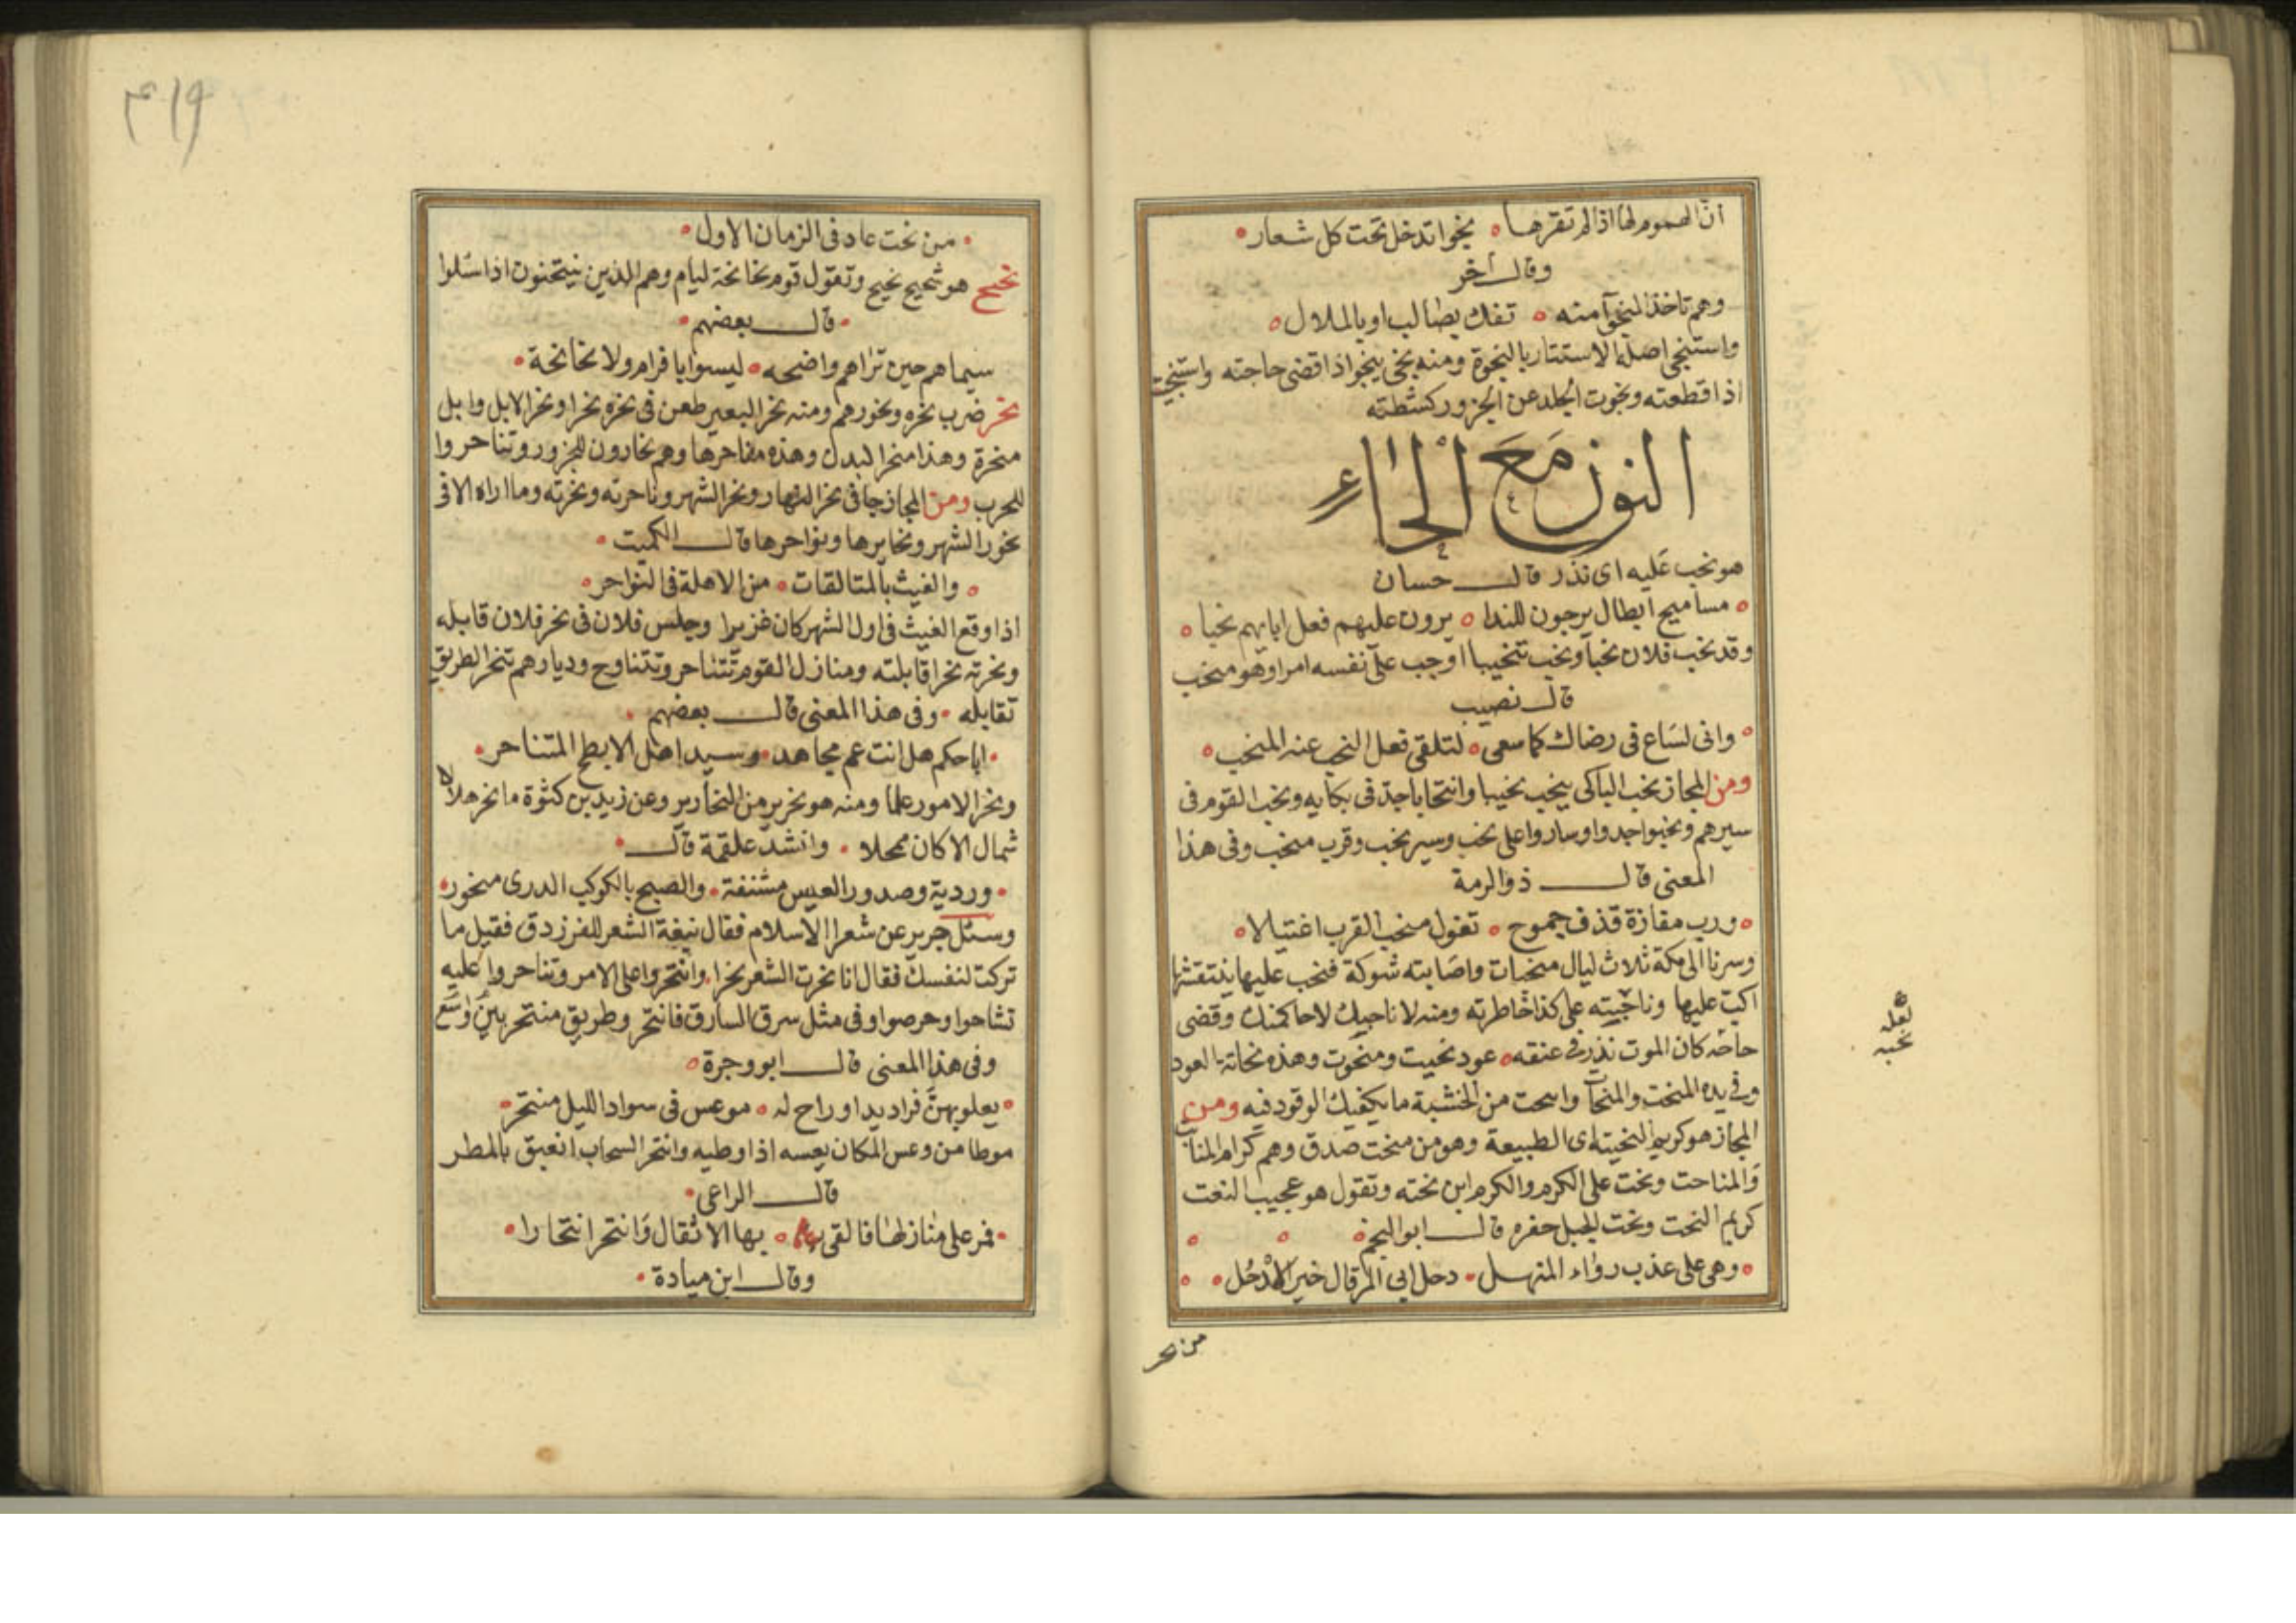 ان الهموم لها اذا لم تقرها نجوا تدخل تحت كل شعار
وقال آخر
وهم تاخذ النجوآ منه تفك بصالب او بالملال
واستنجى اصله الاستتار بالنجوة ومنه نجى ينجو اذا قضى حاجته واستنجيت
اذا قطعته ونجوت الجلد عن الجزور كشطته
النون مع الحاء
هو نحب عليه اى نذر قال حسان
مساميح ابطال يرجون للندا يرون عليهم فعل ابايهم نحبا
وقد نحب فلان نحبا ونحب تنحيبا اوجب على نفسه امرا وهو منحب
قال نصيب
وانى لساع فى رضاك كما سعى لتلقى فعل النحب عنه المنحب
ومن المجاز نحب الباكى ينحب نحيبا وانتحابا جد فى بكايه ونحب القوم فى
سيرهم ونحبوا جدوا وساروا على نحب وسير نحب وقرب منحب وفى هذا
المعنى قال ذو الرمة
ورب مفازة قذف جموح تغول منحب القرب اغتيالا
وسرنا الى مكة ثلاث ليال منحبات واصابته شوكة فنحب عليها ينتقشها
اكب عليها وناحبته على كذا خاطرته ومنه لا ناحبك لا حاكمنك وقضى
حاحه كان الموت نذر فى عنقه عود نحيت ومنحوت وهذه نحاتة العود
وفى يده المنحت والمنحات وانحت من الخشبة ما يكفيك الوقود فيه ومن
المجاز هو كريم النحيتة اى الطبيعة وهو من منحت صدق وهم كرام المناب
والمناحت ونحت على الكرم والكرم ابن نحته وتقول هو عجيب النعت
كريم النحت ونحت الجبل حفره قال ابو النجم
وهى على عذب رواء المنهل دحل ابى المرقال خير الادحل
من نحر
لعله
نحبه
٤١٩
من نحت عاد فى الزمان الاول
نحيح هو شحيح نحيح وتقول قوم نحانحة ليام وهم الذين يتنحنحون اذا سئلوا
قال بعضهم
سيماهم حين تراهم واضحه ليسوا با فرام ولا نحانحة
نحر ضرب نحره ونحورهم ومنه نحر البعير طعن فى نحره نحرا ونحر الابل وابل
منحرة وهذا منحر البدن وهذه مناحرها وهم نحارون للجزور وتناحروا
للحرب ومن المجاز جا فى نحر النهار ونحر الشهر وناحرته ونحرته وما اراه الا فى
نحور الشهر ونحايرها ونواحرها قال الكميت
والغيث بالمتالقات من الاهلة فى النواحر
اذا وقع الغيث فى اول الشهر كان غزيرا وجلس فلان فى نحر فلان قابله
ونحرته نحرا قابلته ومنازل القوم تتناحر وتتناوح وديارهم تنحر الطريق
تقابله وفى هذا المعنى قال بعضهم
ابا حكم هل انت عم مجاهد وسيد اهل الابطح المتناحر
ونحر الامور علما ومنه هو نحرير من النحارير وعن زيد بن كثوة ما نحر هلالا
شمال الا كان ممحلا وانشد علقمة قال
وردية وصدور العيس مشنفة والصبح بالكوكب الدرى منحور
وسئل جرير عن شعرا الاسلام فقال نبغة الشعر للفرزدق فقيل ما
تركت لنفسك فقال انا نحرت الشعر نحرا وانتحروا على الامر وتناحروا عليه
تشاحوا وحرصوا وفى مثل سرق السارق فانتحر وطريق منتحر بين واسع
وفى هذا المعنى قال ابو وجرة
يعلو بهن فراديدا وراح له موعس فى سواد الليل منتحر
موطا من وعس المكان يعسه اذا وطيه وانتحر السحاب انعبق بالمطر
قال الراعى
فمر على منازلها فالقى بها الاثقال وانتحر انتحارا
وقال ابن ميادة